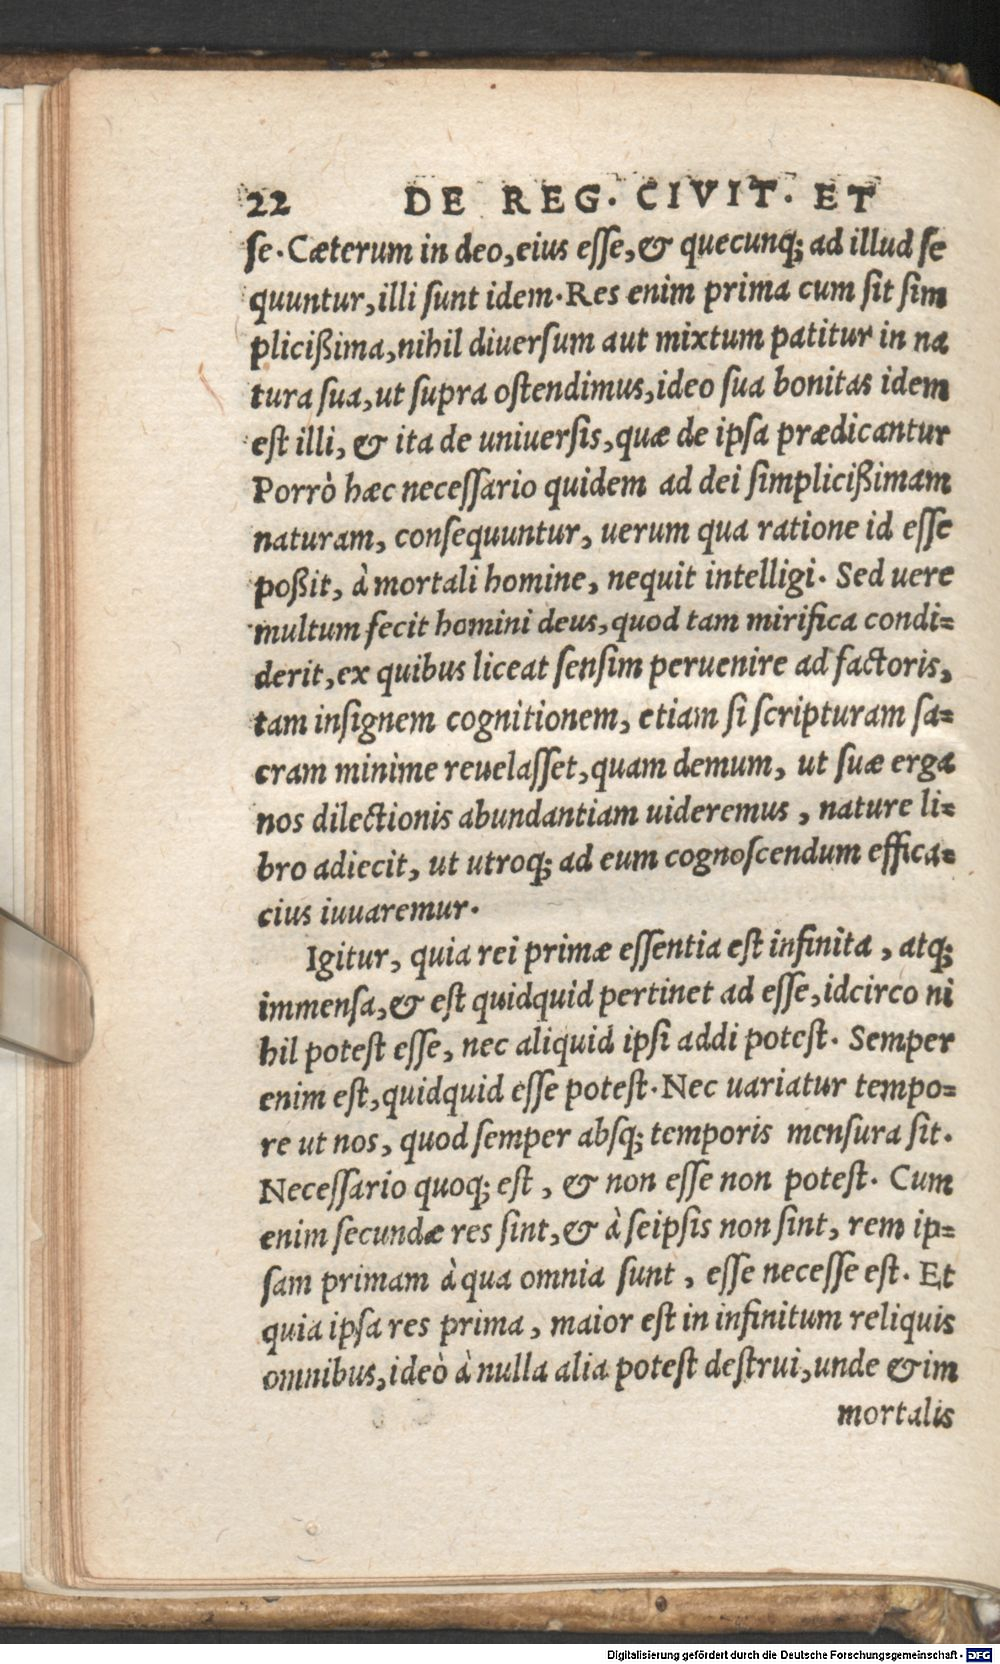 22 DE REG. CIVIT. ET
se. Cæterum in deo, eius esse, & quecunq; ad illud se
quuntur, illi sunt idem. Res enim prima cum sit sim
plicißima, nihil diuersum aut mixtum patitur in na
tura sua, ut supra ostendimus, ideo sua bonitas idem
est illi, & ita de uniuersis, quæ de ipsa prædicantur
Porrò hæc necessario quidem ad dei simplicißimam
naturam, consequuntur, uerum qua ratione id esse
poßit, à mortali homine, nequit intelligi. Sed uere
multum fecit homini deus, quod tam mirifica condi=
derit, ex quibus liceat sensim peruenire ad factoris,
tam insignem cognitionem, etiam si scripturam sa=
cram minime reuelasset, quam demum, ut suæ erga
nos dilectionis abundantiam uideremus, nature li=
bro adiecit, ut utroq; ad eum cognoscendum effica=
cius iuuaremur.
Igitur, quia rei primæ essentia est infinita, atq;
immensa, & est quidquid pertinet ad esse, idcirco ni
hil potest esse, nec aliquid ipsi addi potest. Semper
enim est, quidquid esse potest. Nec uariatur tempo=
re ut nos, quod semper absq; temporis mensura sit.
Necessario quoq; est, & non esse non potest. Cum
enim secundæ res sint, & à seipsis non sint, rem ip=
sam primam à qua omnia sunt, esse necesse est. Et
quia ipsa res prima, maior est in infinitum reliquis
omnibus, ideò à nulla alia potest destrui, unde & im
mortalis
Digitalisierung gefördert durch die Deutsche Forschungsgemeinschaft - DFG